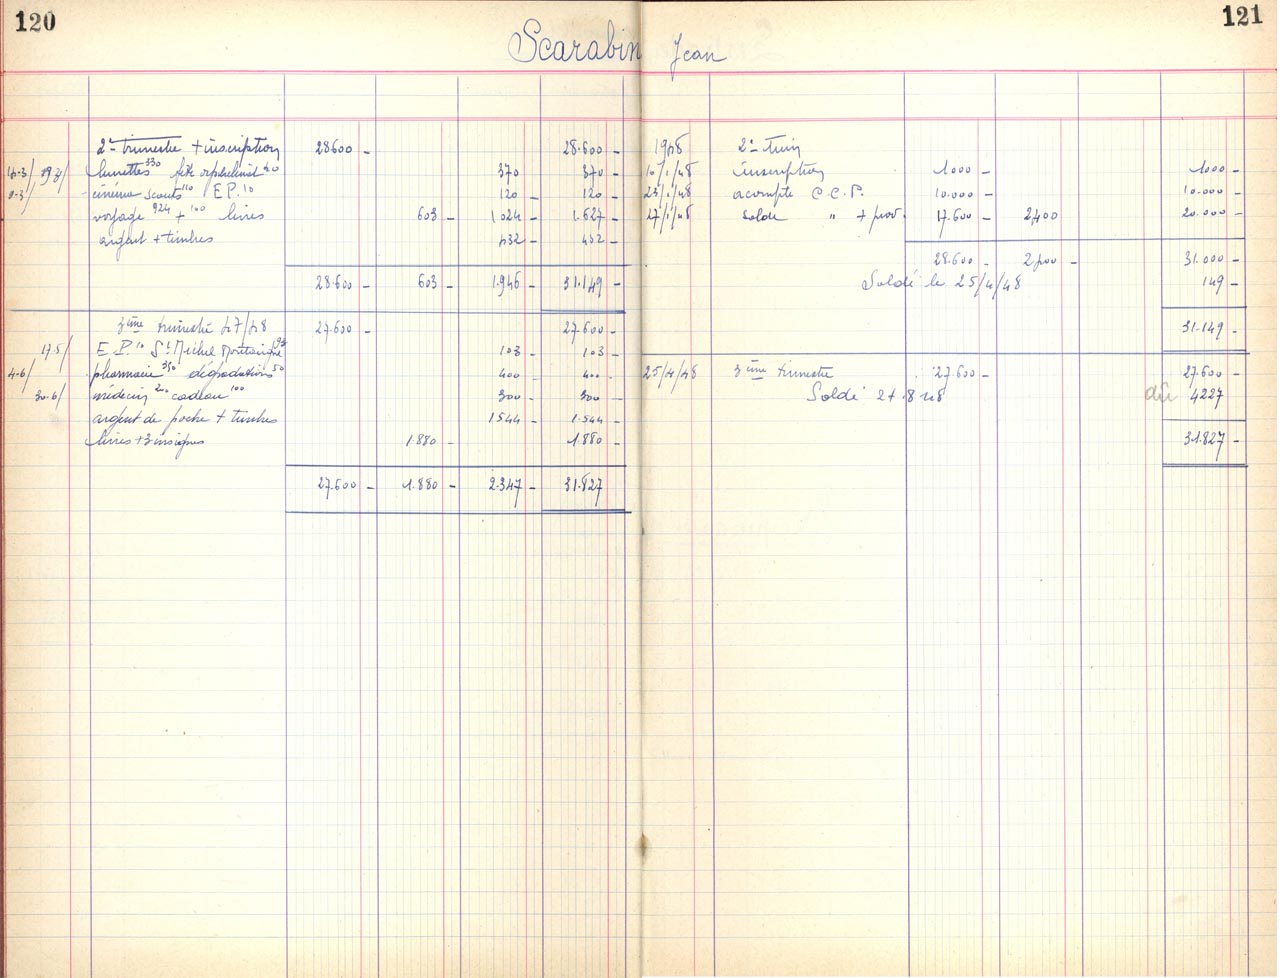 120
121
Scarabin Jean
2e trimestre + inscription 28600 - 28.600 -
lunettes 330 fête orphelinat 40 370 370 -
cinéma scouts 110 E.P. 10 120 - 120 -
voyage 924 + 100 livres 603 - 1024 - 1.627 -
argent + timbres 432 - 432 -
28.600 - 603 - 1.946 - 31.149 -
3ème trimestre 47/48 27.600 - 27.600 -
17.5/ E.P. 10 St Michel Montaigne 93 103 - 103 -
4-6/ pharmacie 350 dégradations 50 400 - 400 -
30.6/ médecin 200 cadeau 100 300 - 300 -
argent de poche + timbres 1544 - 1.544 -
livres + 3 insignes 1.880 - 1.880 -
27.600 - 1.880 - 2.347 - 31.827
1948 2e trim
10/1/48 inscription 1000 - 1000 -
23/1/48 acompte C.C.P. 10.000 - 10.000 -
27/1/48 solde " + prov. 17.600 - 2400 20.000 -
28.600 - 2400 - 31.000 -
Soldé le 25/4/48 149 -
31.149 -
25/4/48 3ème trimestre 27.600 - 27.600 -
Soldé 27.8.48 dû 4227
31.827 -